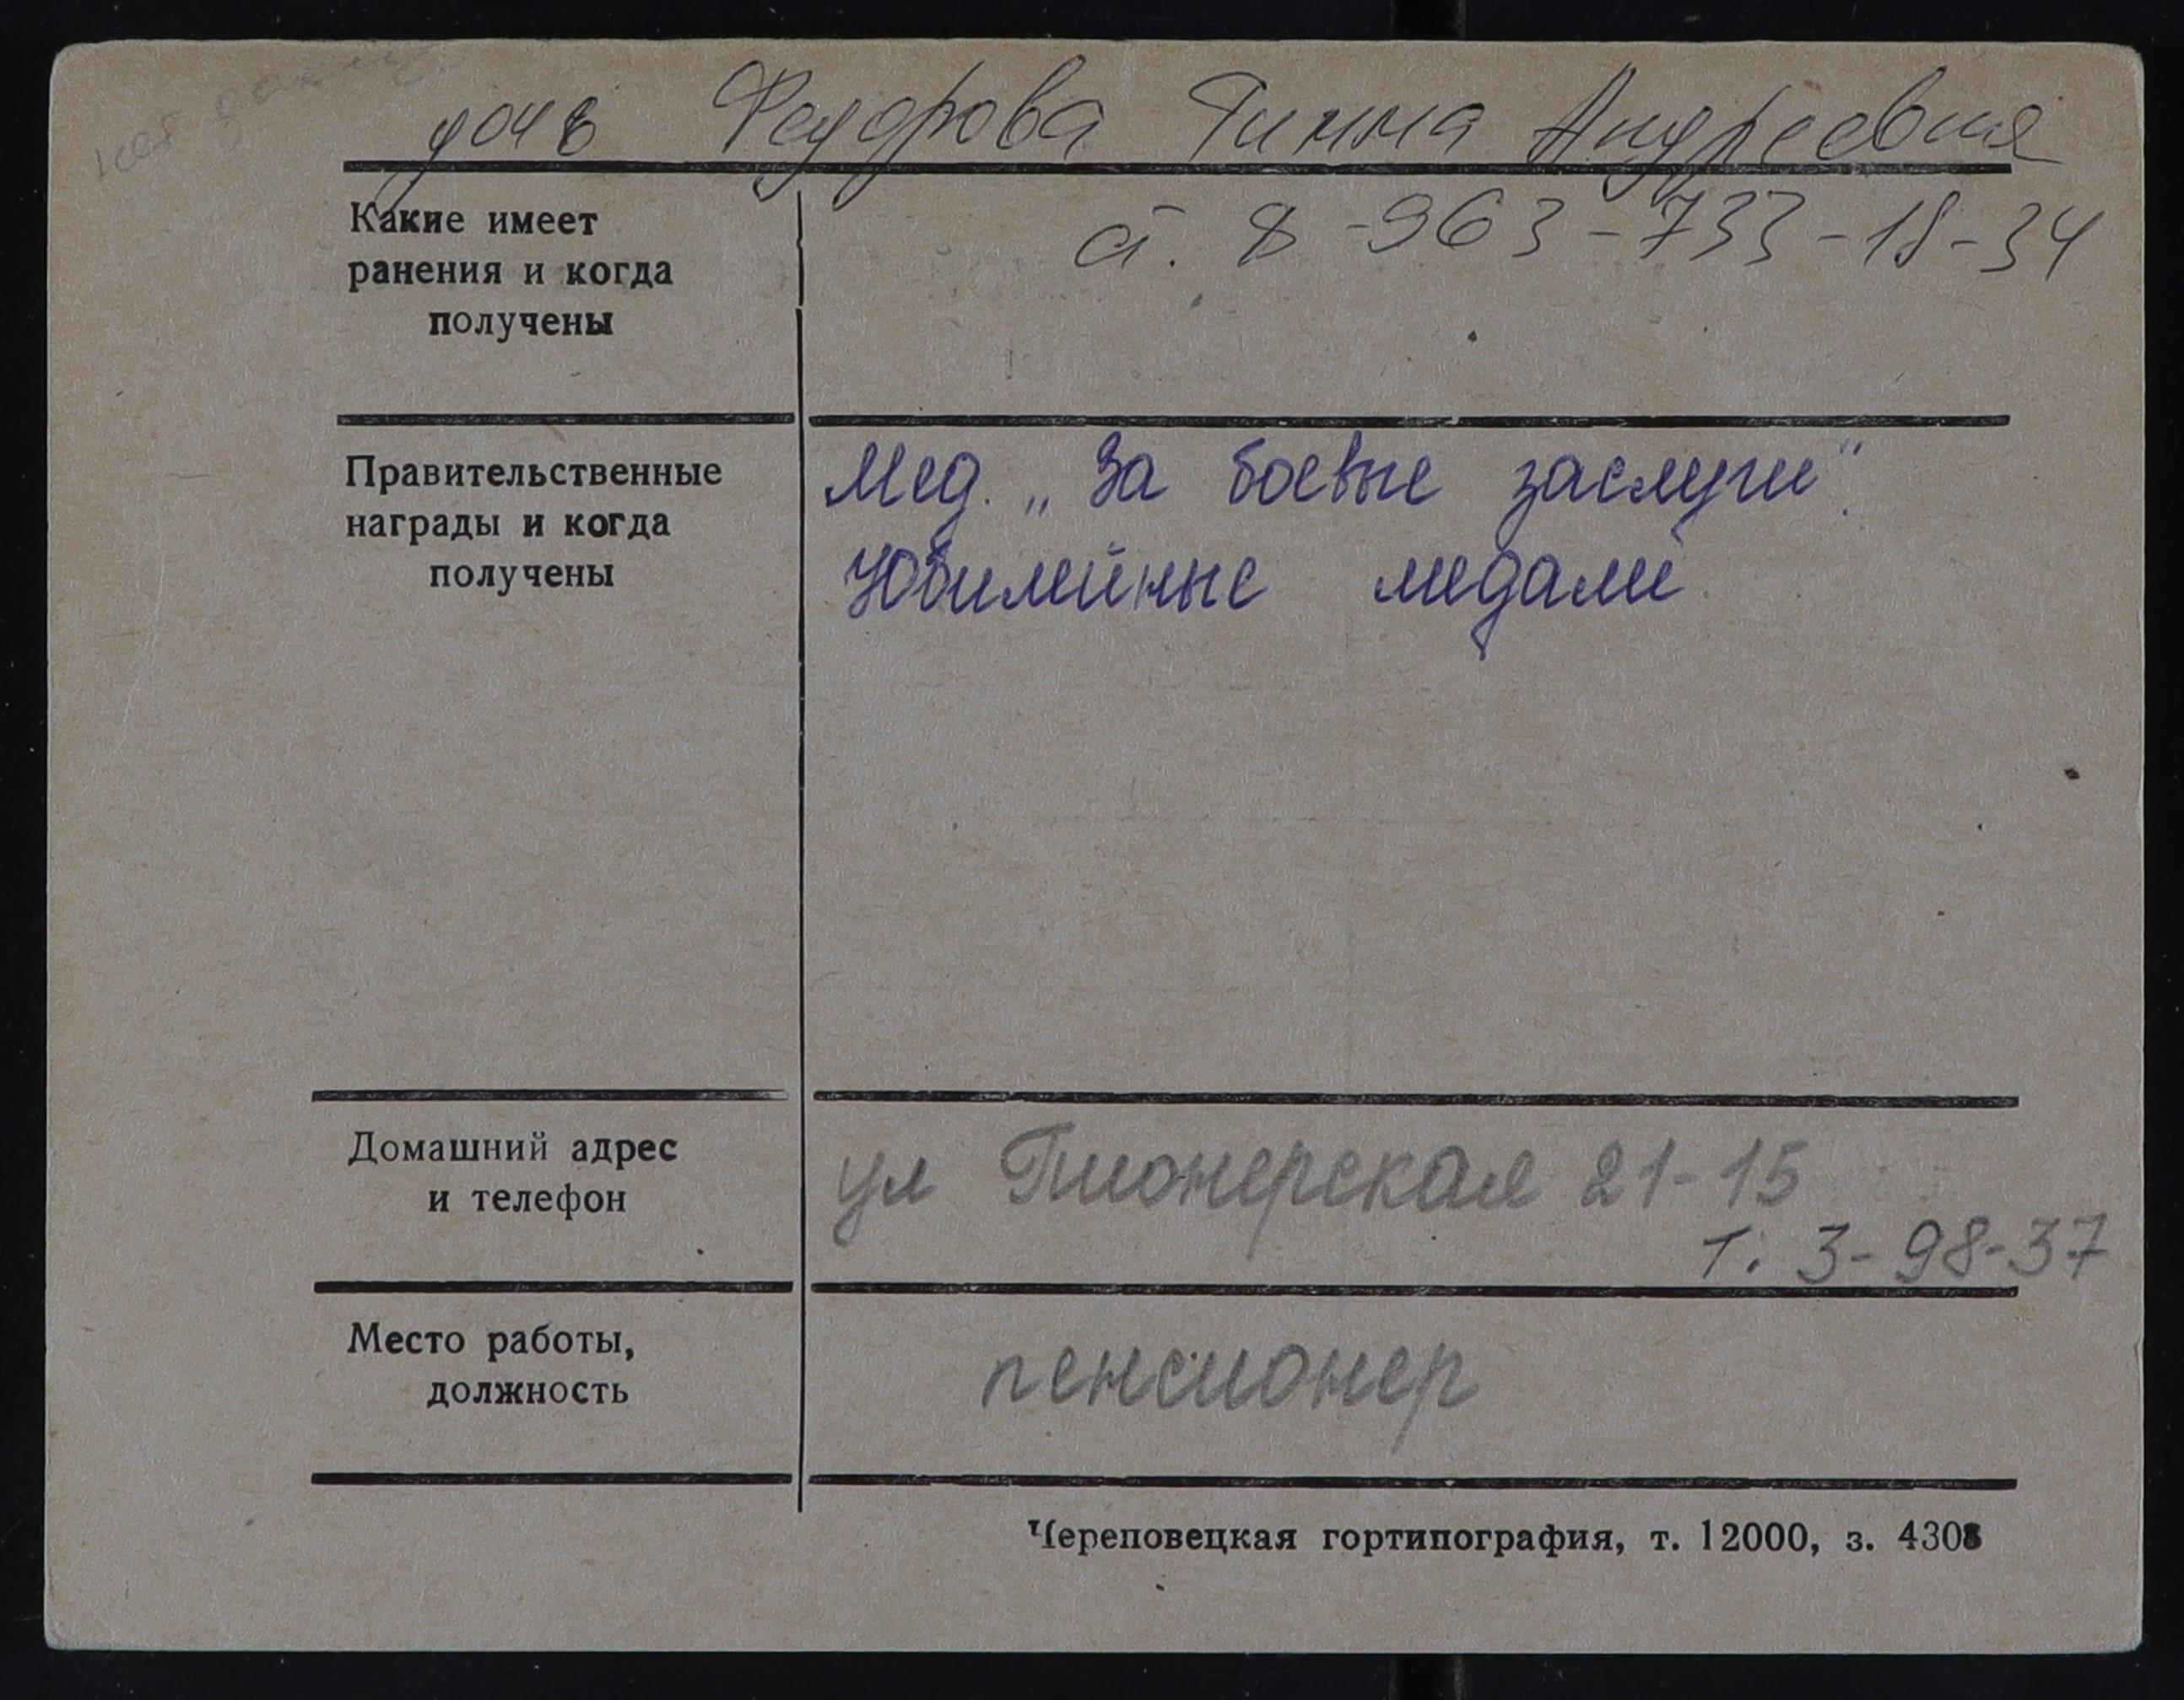 дочь Федорова Римма Андреевна
Какие имеет
ранения и когда
получены
с. 8-963-733-18-34
Правительственные
награды и когда
получены
Мед. „За боевые заслуги".
Юбилейные медали
Домашний адрес
и телефон
ул Пионерская 21-15
т. 3-98-37
Место работы,
должность
пенсионер
Череповецкая гортипография, т. 12000, з. 4308